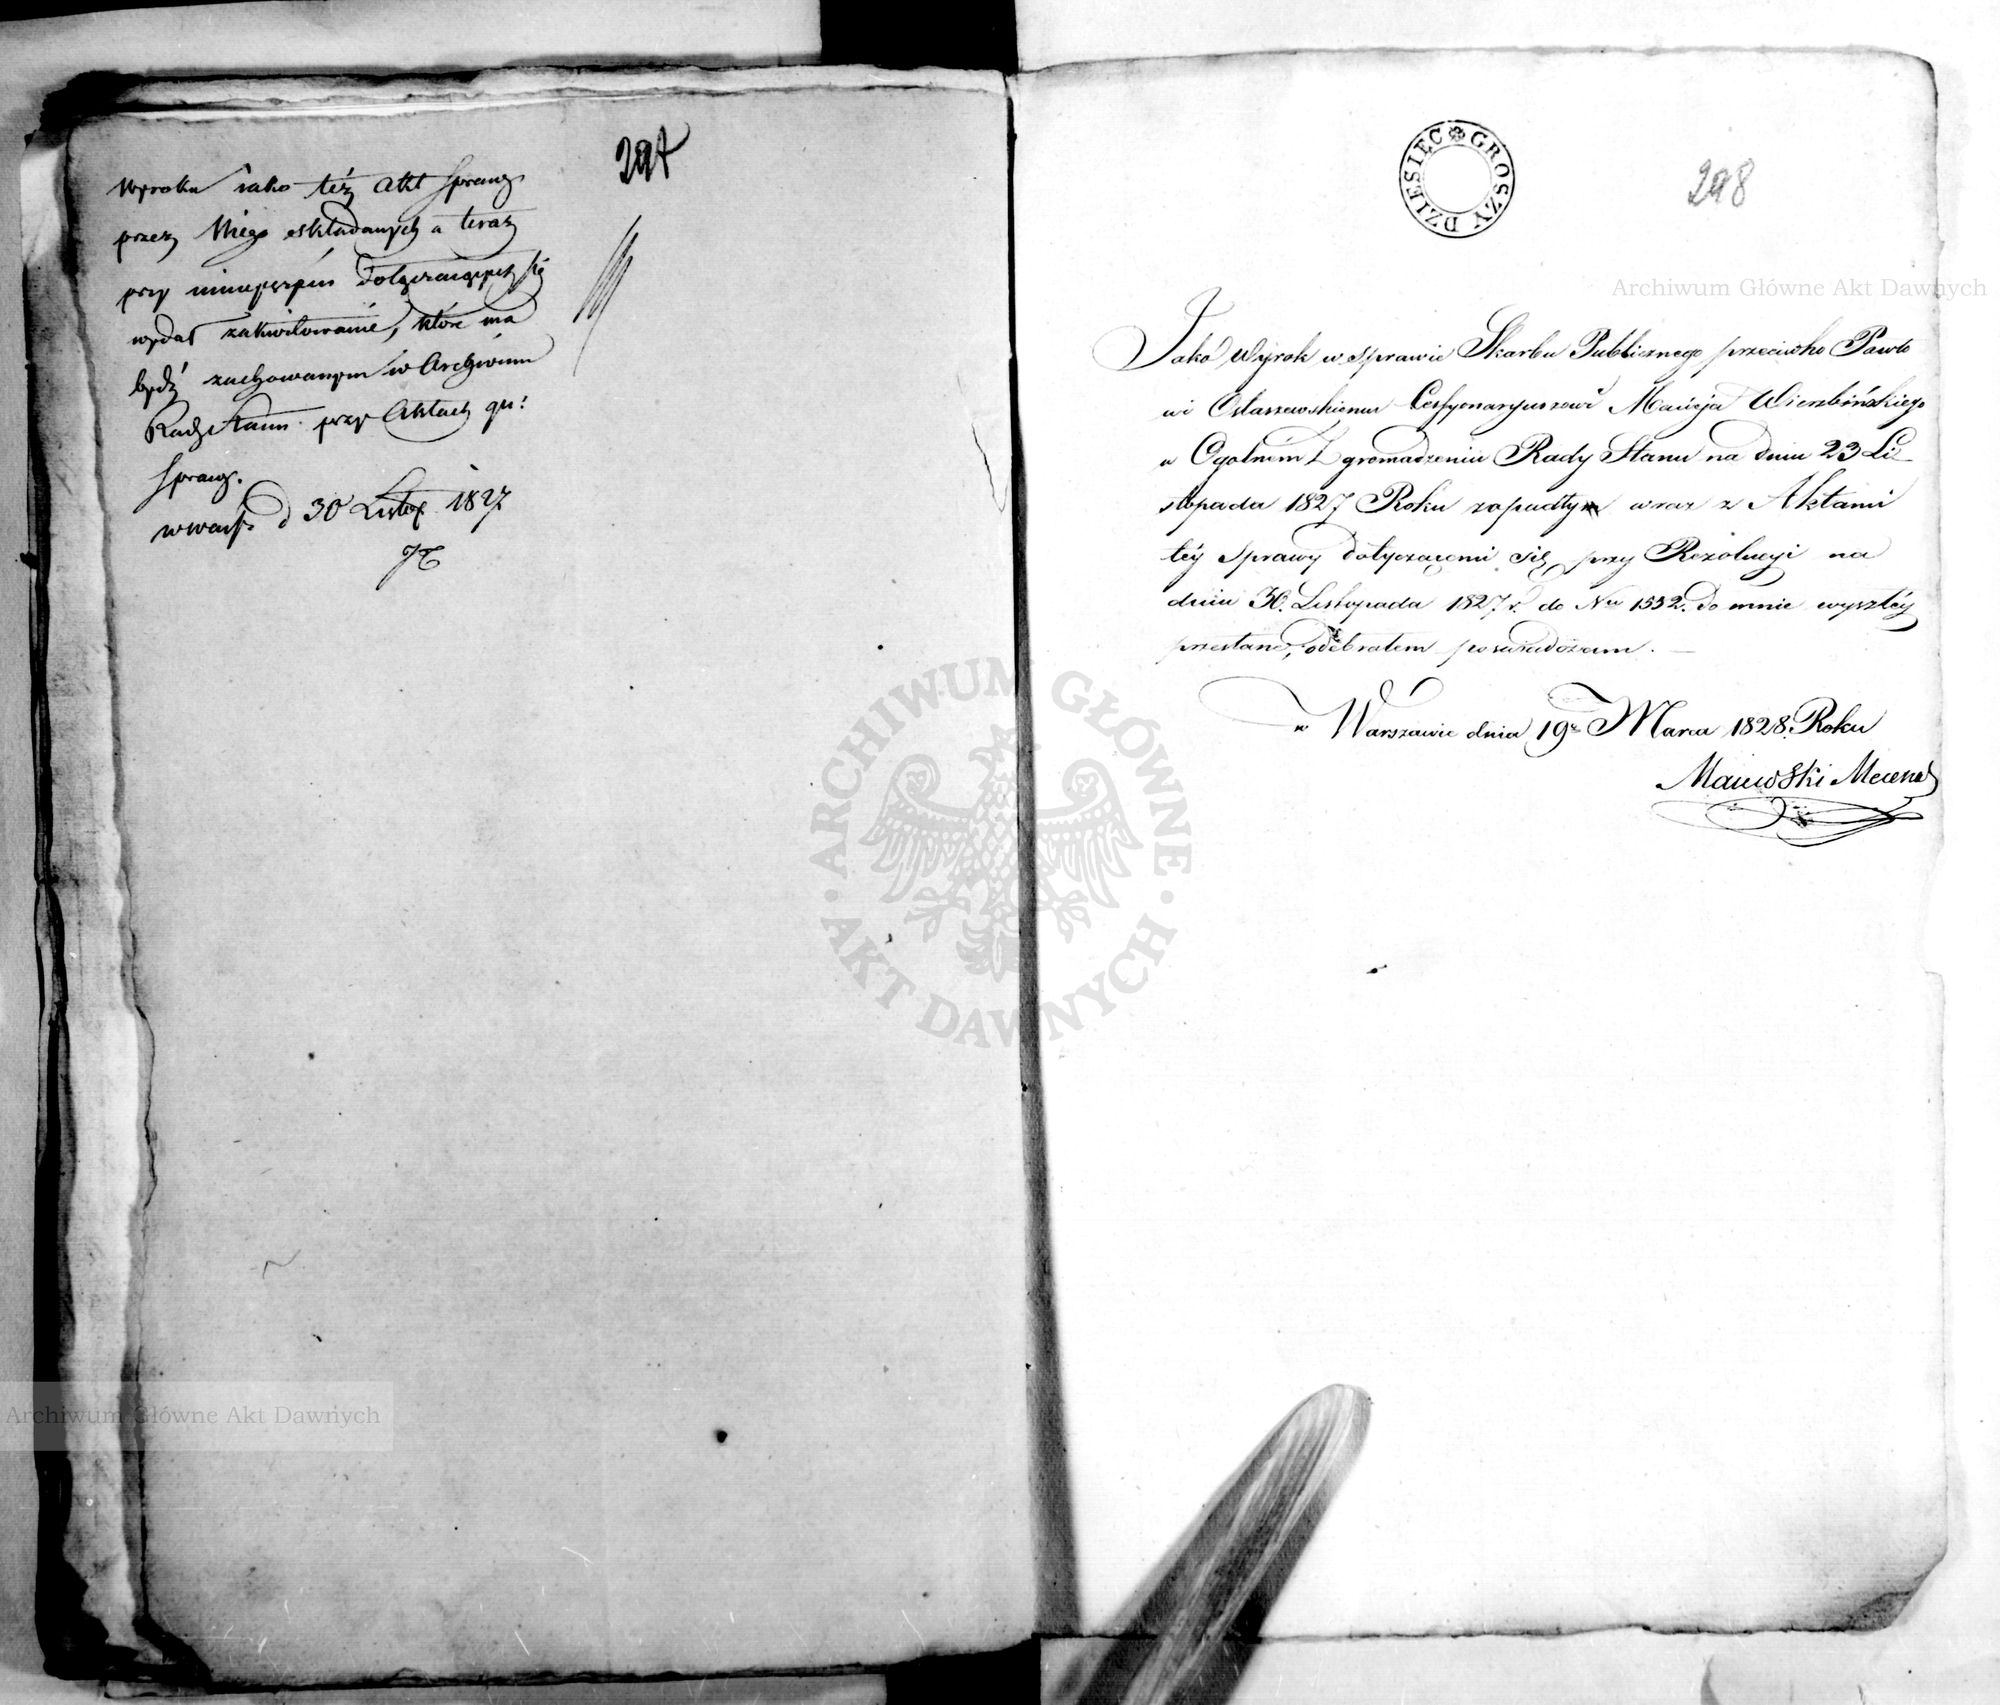 297
wyroku iako też akt sprawy
przez Niego składanych a teraz
przy ninieyszém dołączaiących się
wydał zakwitowanie, które ma
bydź zachowanym w Archiwum
Rady Stanu przy Aktach gn:
sprawy.
w Warsz: d 30 Listop. 1827
DZIESIĘĆ GROSZY
298
Archiwum Główne Akt Dawnych
Jako Wyrok w sprawie Skarbu Publicznego przeciwko Pawło
wi Ostaszewskiemu Cessyonaryuszowi Macieja Wierzbińskiego
w Ogolném Zgromadzeniu Rady Stanu na dniu 23 Li
stopada 1827 Roku zapadły wraz z Aktami
téy Sprawy dotyczącemi się przy Rezolucyi na
dniu 30. Listopada 1827 r. do Nru 1552. do mnie wyszłéy
przesłane, odebrałem poswiadczam.
w Warszawie dnia 19go Marca 1828. Roku
Majewski Mecenas
ARCHIWUM GŁÓWNE
AKT DAWNYCH
Archiwum Główne Akt Dawnych